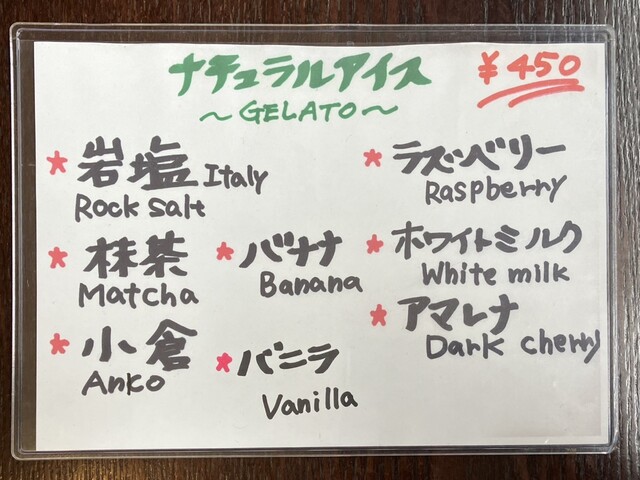 ナチュラルアイス
～GELATO～
¥450
★岩塩 Italy
Rock salt
★抹茶
Matcha
★小倉
Anko
★バナナ
Banana
★バニラ
Vanilla
★ラズベリー
Raspberry
★ホワイトミルク
White milk
★アマレナ
Dark cherry